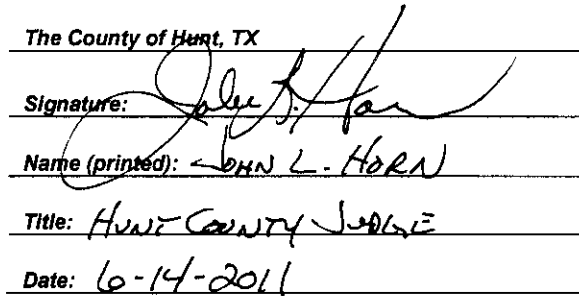 The County of Hunt, TX
Signature: John L. Horn
Name (printed): JOHN L. HORN
Title: HUNT COUNTY JUDGE
Date: 6-14-2011